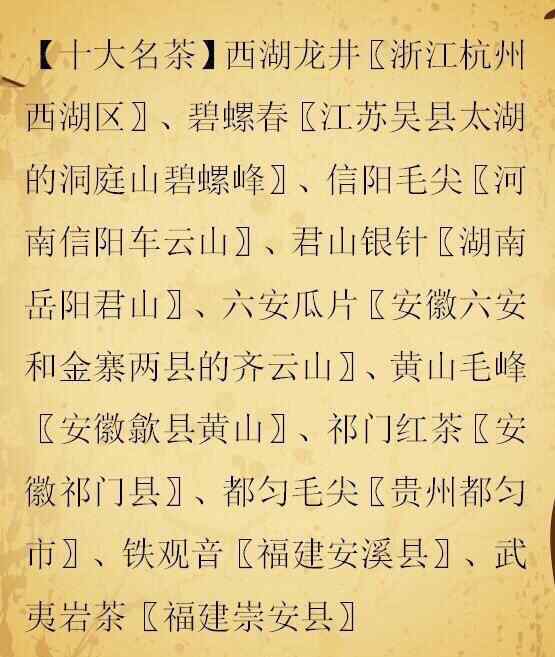 【十大名茶】西湖龙井〖浙江杭州
西湖区〗、碧螺春〖江苏吴县太湖
的洞庭山碧螺峰〗、信阳毛尖〖河
南信阳车云山〗、君山银针〖湖南
岳阳君山〗、六安瓜片〖安徽六安
和金寨两县的齐云山〗、黄山毛峰
〖安徽歙县黄山〗、祁门红茶〖安
徽祁门县〗、都匀毛尖〖贵州都匀
市〗、铁观音〖福建安溪县〗、武
夷岩茶〖福建崇安县〗